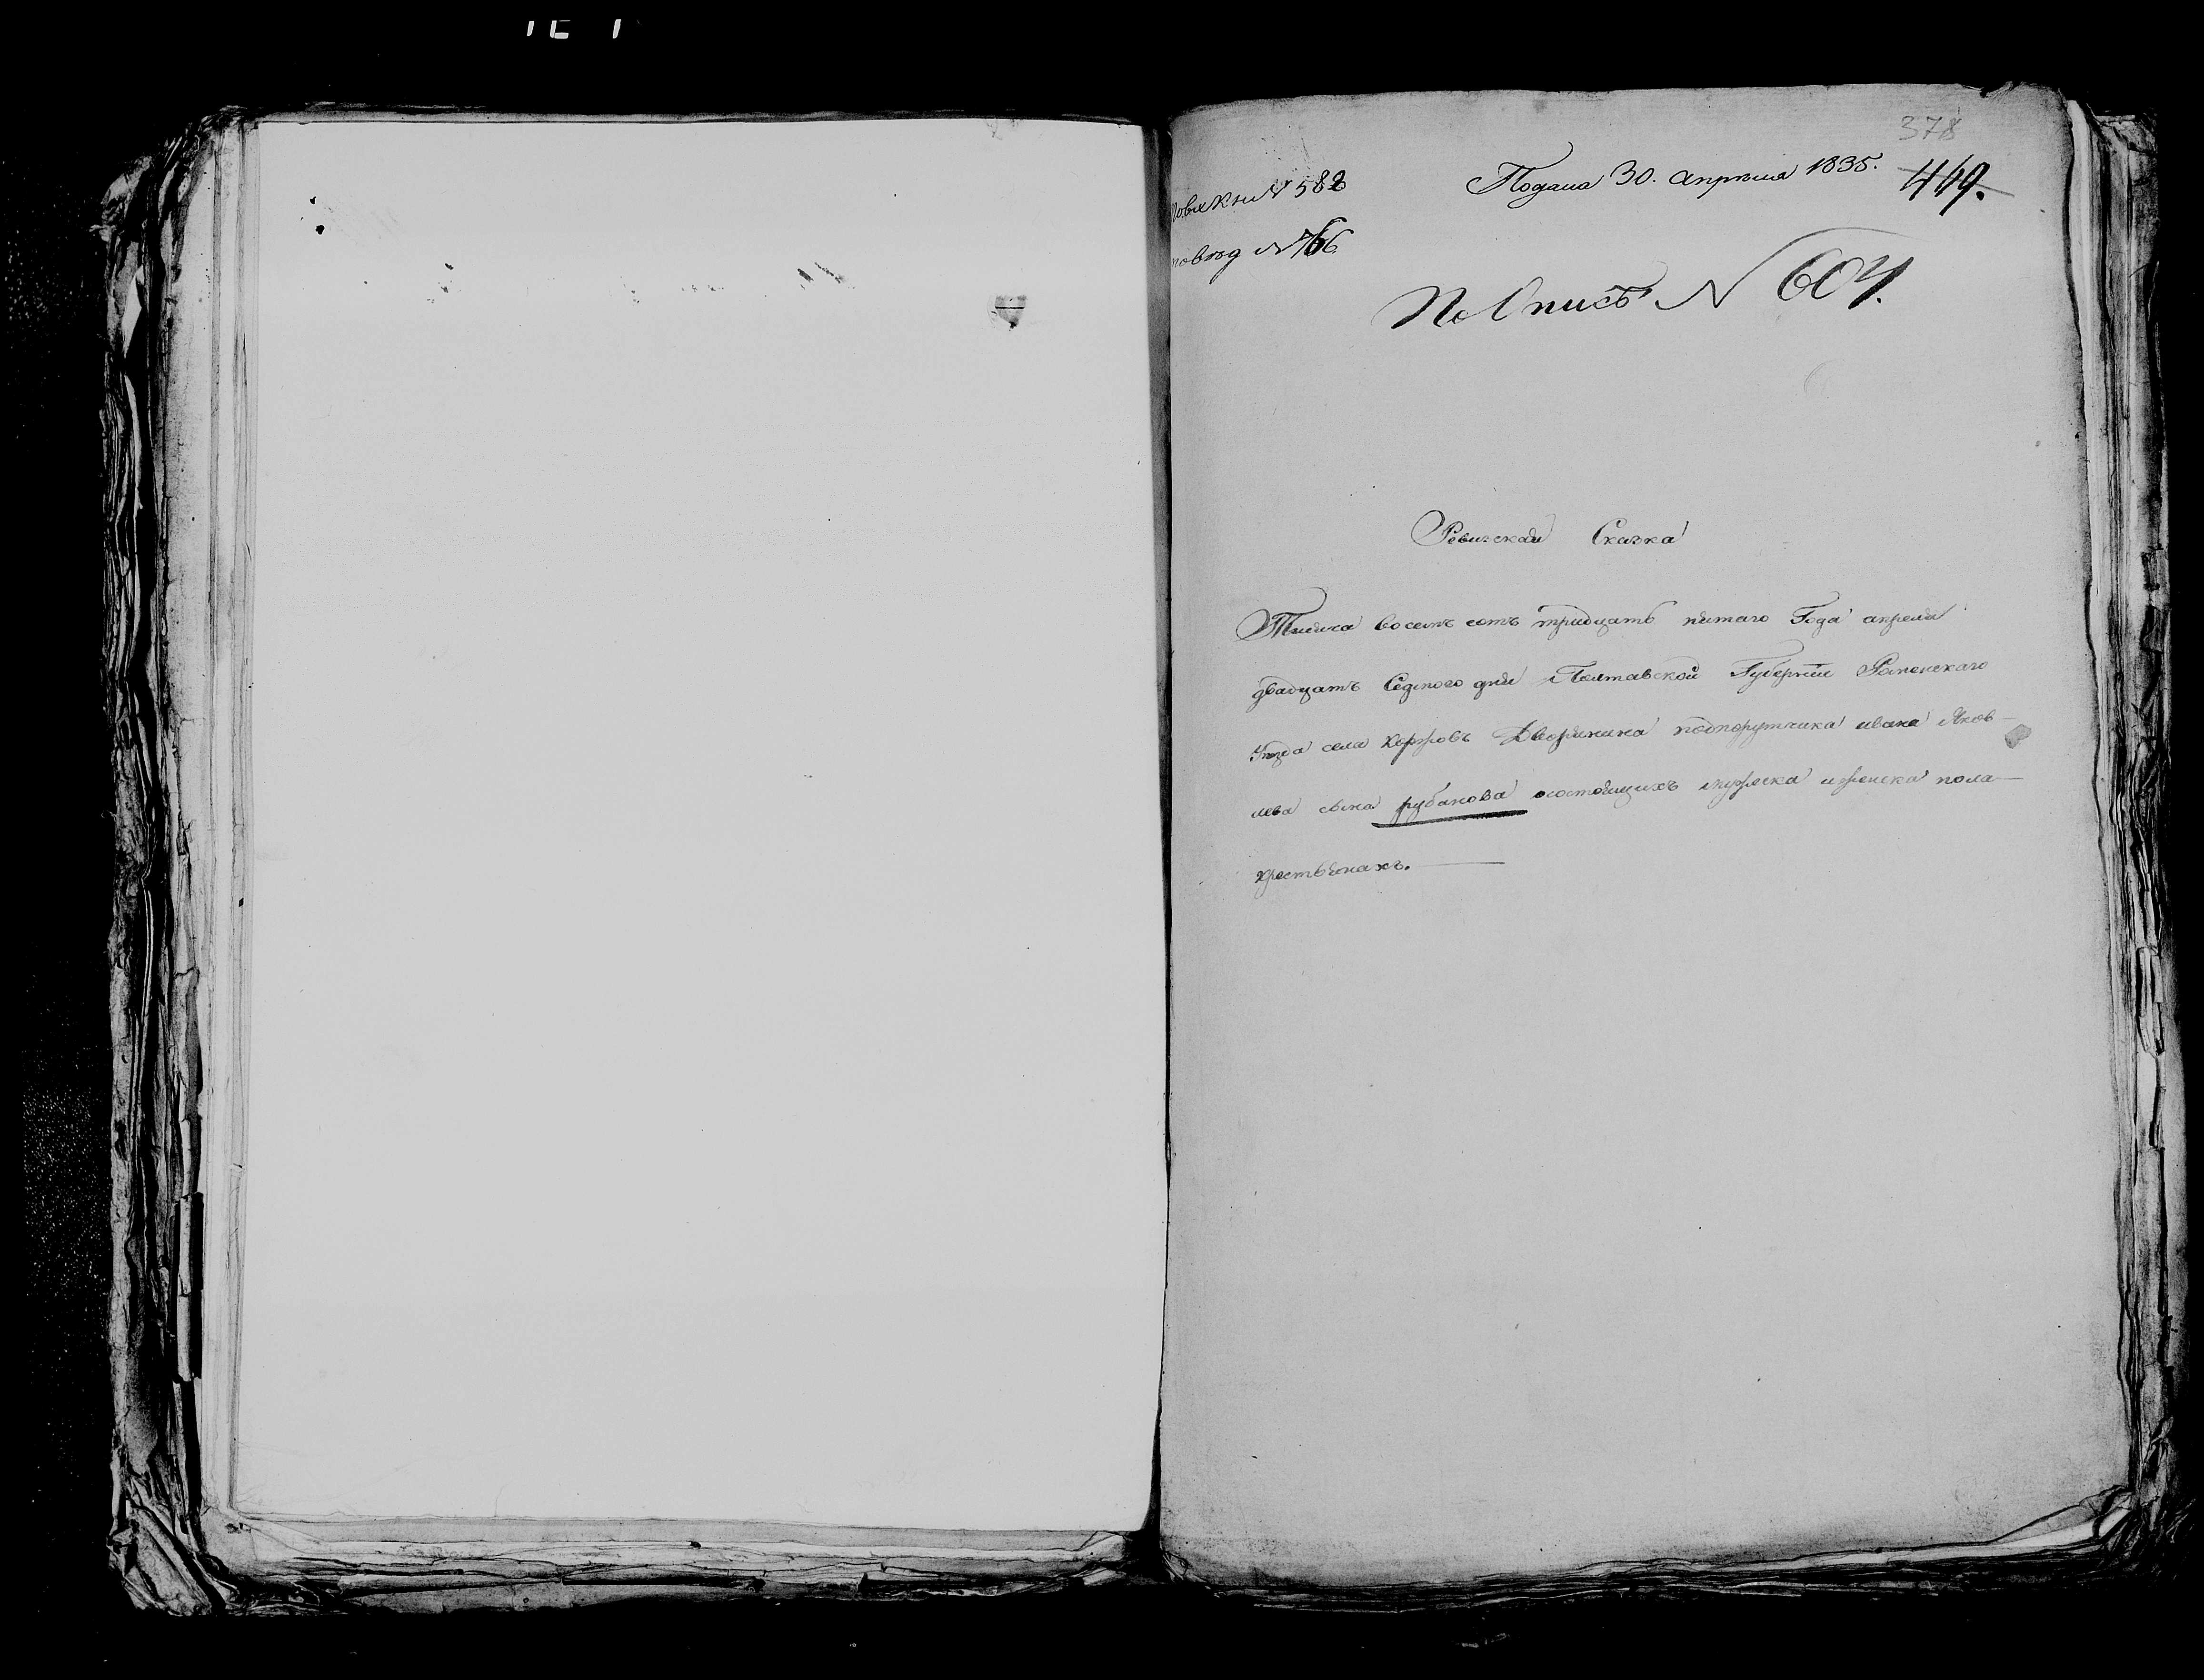 378
Подана 30. Апрѣля 1835. 449.
№ 582
повѣд № 66
По Описѣ № 604.
Ревизская Сказка
Тысяча восемъ сотъ тридцать пятаго Года апреля
двадцатъ Седмого дня Полтавской Губерніи Роменскаго
Уѣзда села Коржовъ Дворянина подпорутчика ивана Яков-
лева сына рубанова осостоящихъ мужеска иженска пола
крестьянахъ.